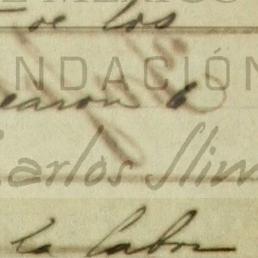 de los
NDACIÓN
earon 6
Carlos Slim
la labor